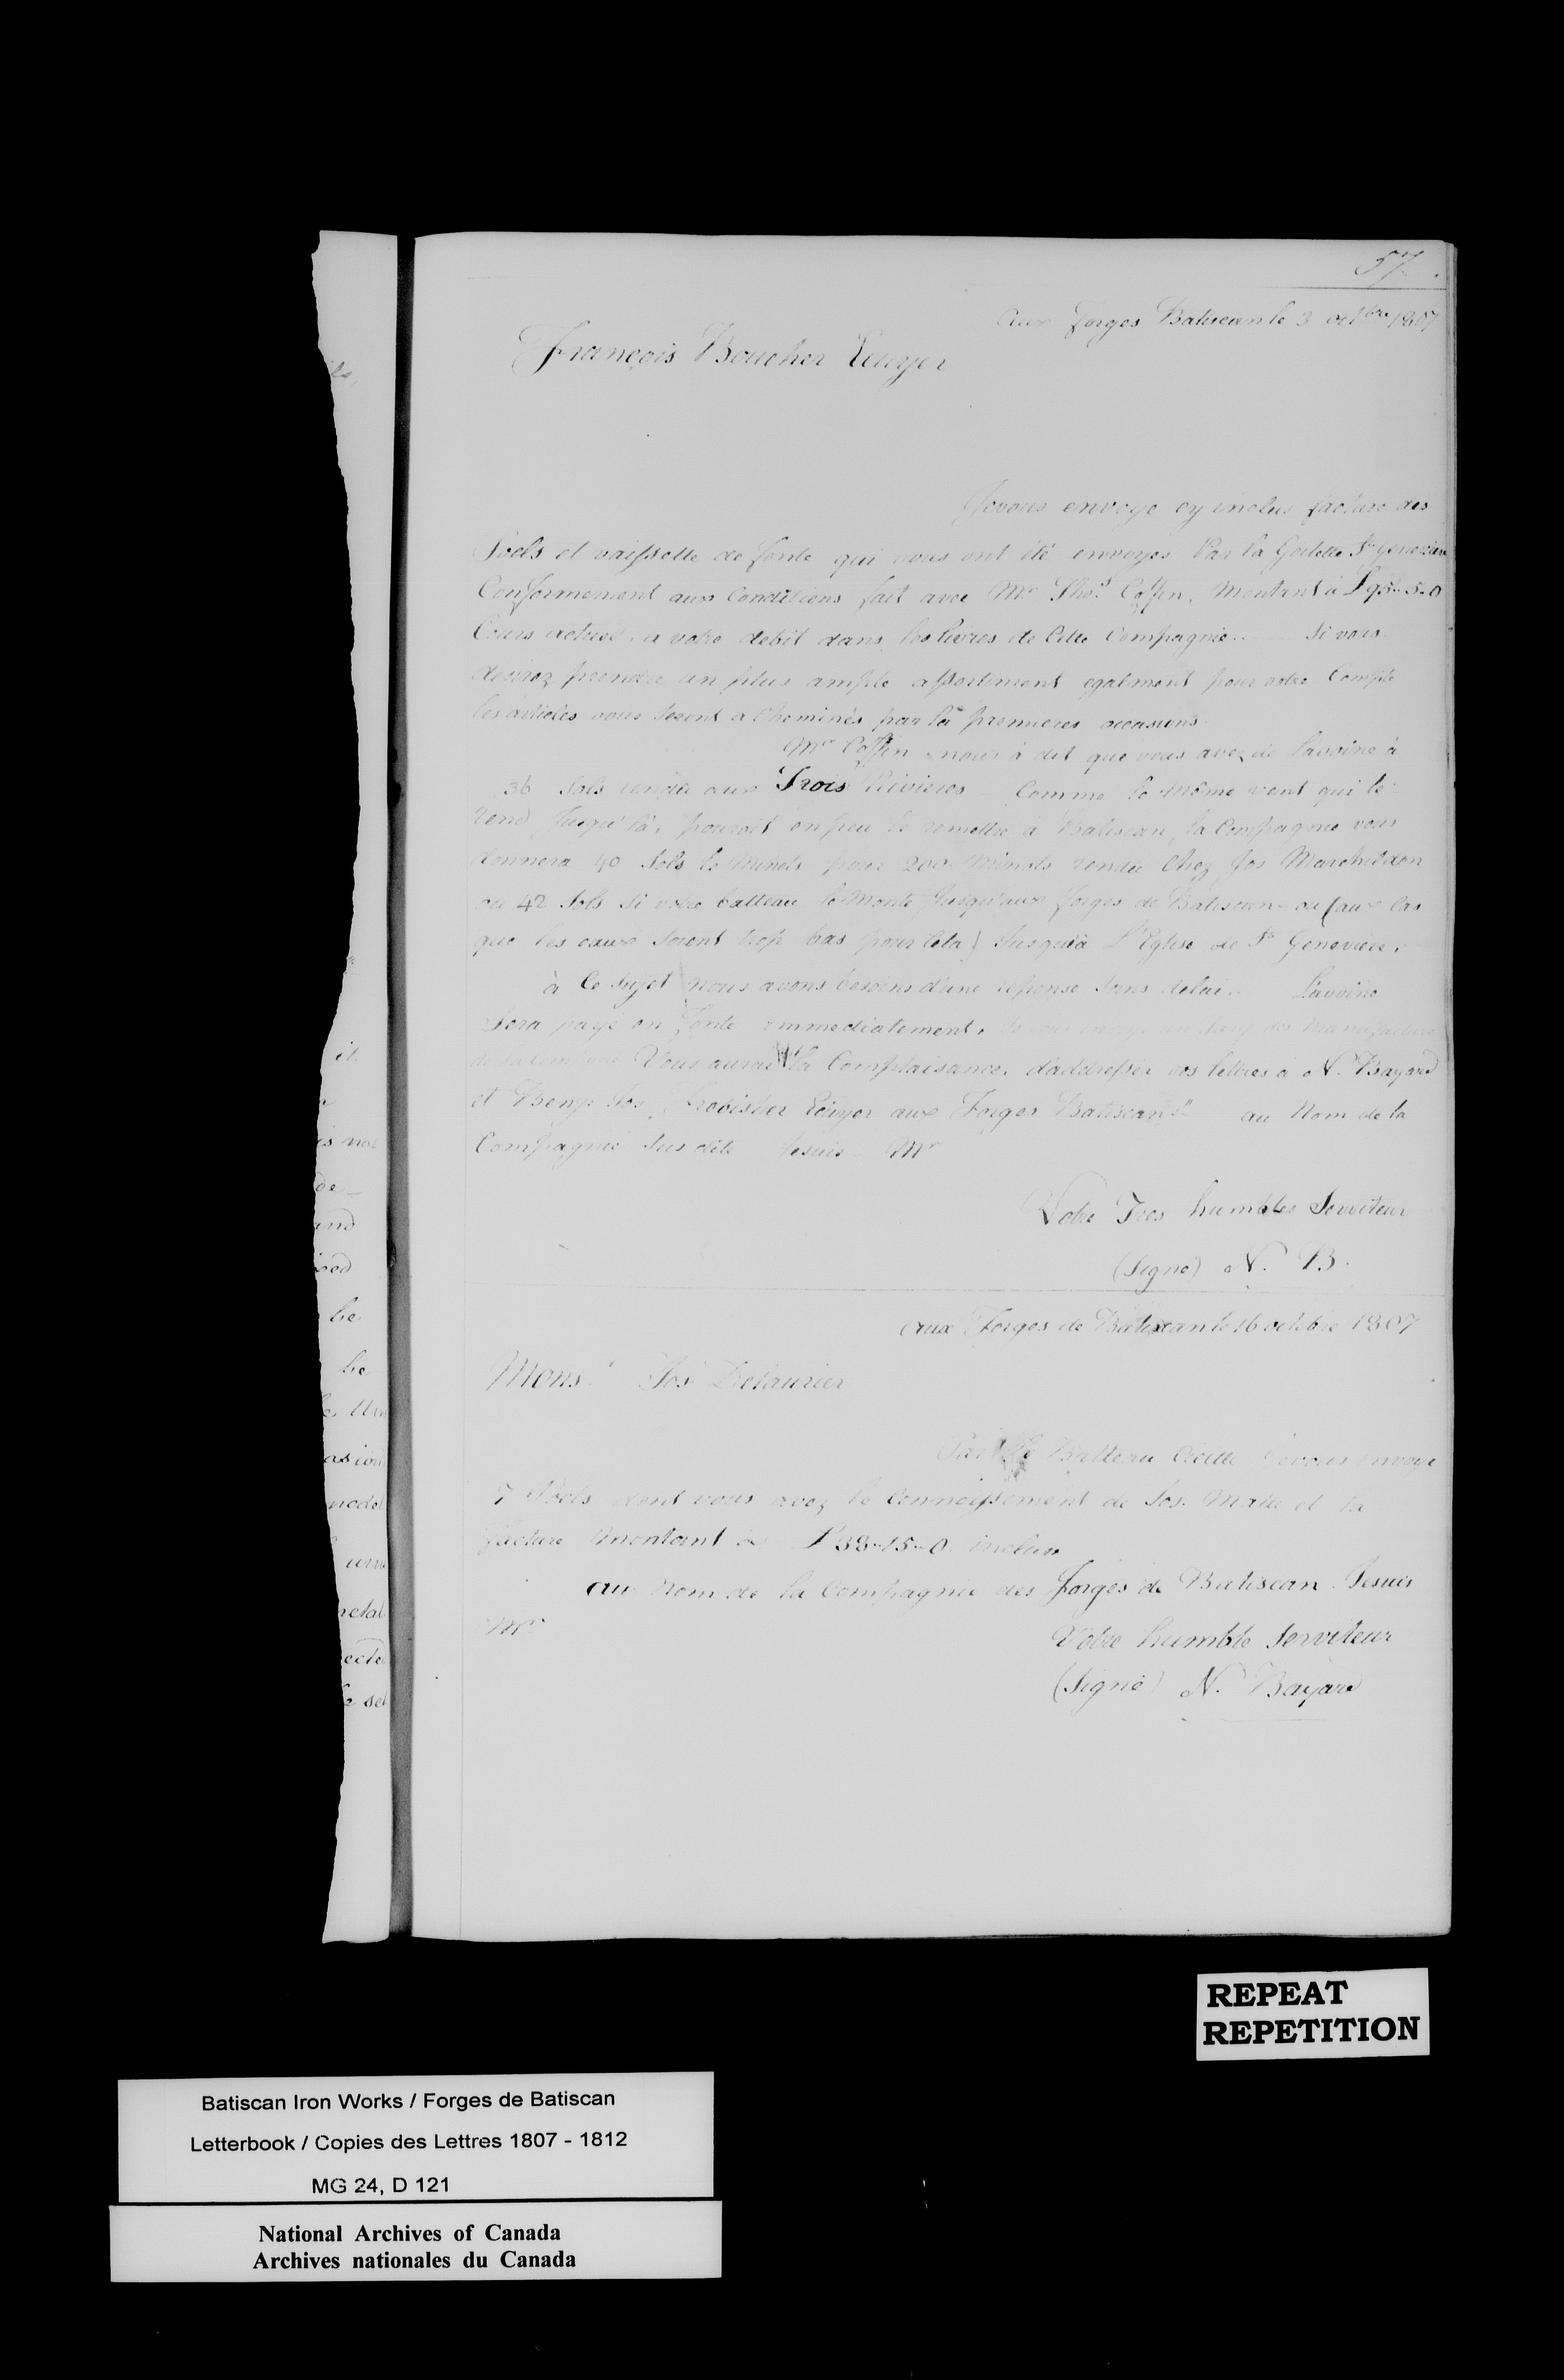 57
aux Forges Batiscan le 3 octbre 1807
François Boucher Ecuyer
Je vous envoye cy inclus facture des
Poels et vaisselle de fonte qui vous ont été envoyés Par la Goelette Ste Genevieve
Conformement aux Conditions fait avec Mr Thos Coffin, Montant à £95-5-0
Cours actuel, a votre debit dans les livres de Cette Compagnie. Si vous
desirez prendre un plus ample assortiment egalment pour votre Compte
les articles vous seront acheminés par la premieres occasions
Mr Coffin nous à dit que vous avez de lavoine à
36 Sols rendu aux Trois Rivieres Comme le même vent qui le
rend Jusqu'là, pouroit en peu le remettre à Batiscan, la Compagnie vous
donnera 40 Sols le Minots pour 200 Minots rendu Chez Jos Marchildon
ou 42 Sols Si votre batteau le Monte Jusqu'aux forges de Batiscan - ou (aux cas
que les eaux seront trop bas pour Cela) Jusqu'à L'Eglise de Ste Genevieve.
à Ce Sujet nous avons besoins d'une reponse Sans delai. Lavoine
Sera payé en fonte immediatement, Manufacture
de la Vous aurai la Complaisance, d'addresser vos lettres à N. Bayard
et Benj. Jos Frobisher Ecuyer aux Forges Batiscan" au Nom de la
Compagnie Sus dite Jesuis Mr
Votre Tres humbles Serviteur
(Signé) N. B.
aux Forges de Batiscan le 16 octobre 1807
Monsr Jos Delaurier
Par Batteau Je vous envoye
7 Poels dont vous avez le Connoissement de Jos. et la
facture Montant à £38-15-0 inclus
au Nom de la Compagnie des Forges de Batiscan Jesuis
Mr
Votre humble Serviteur
(Signé) N. Bayard
it
is
de
and
be
be
asion
model
metal
REPEAT
REPETITION
Batiscan Iron Works / Forges de Batiscan
Letterbook / Copies des Lettres 1807 - 1812
MG 24, D 121
National Archives of Canada
Archives nationales du Canada